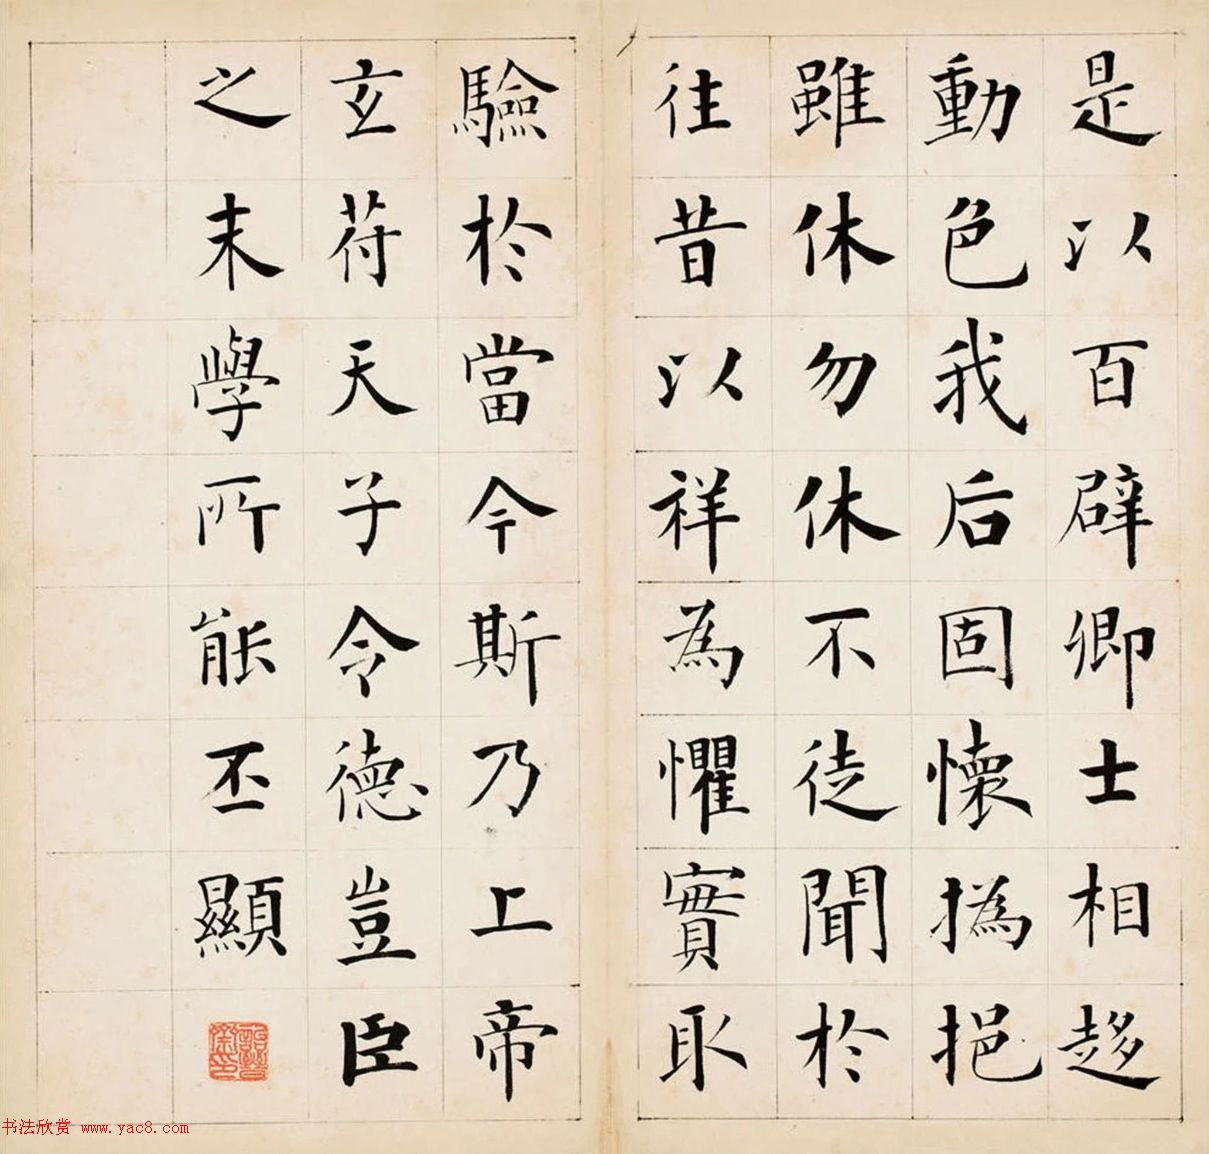 是以百辟卿士相趍
動色我后固懷撝挹
雖休勿休不徒聞於
往昔以祥為懼實取
驗於當今斯乃上帝
玄苻天子令德豈臣
之末學所能丕顯
书法欣赏 www.yac8.com